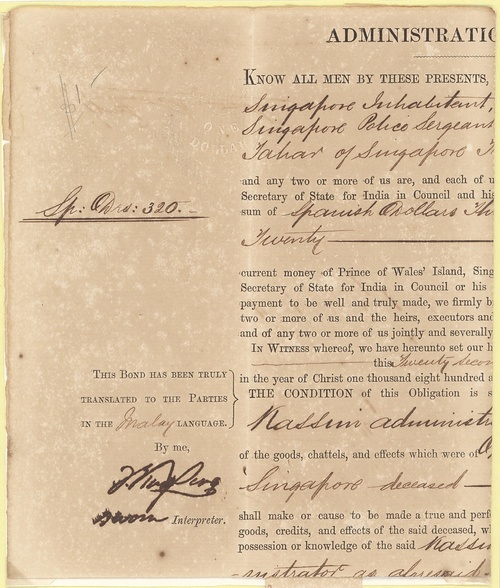 ADMINISTRATIO
KNOW ALL MEN BY THESE PRESENTS,
Singapore Inhabitant,
Singapore Police Sergeant
Tahar of Singapore
and any two or more of us are, and each of u
Secretary of State for India in Council and his
Sp: Drs: 320.-
sum of Spanish Dollars Th
Twenty
current money of Prince of Wales' Island, Sing
Secretary of State for India in Council or his
payment to be well and truly made, we firmly b
two or more of us and the heirs, executors and
and of any two or more of us jointly and severally
IN WITNESS whereof, we have hereunto set our h
this Twenty Secon
in the year of Christ one thousand eight hundred a
THE CONDITION of this Obligation is s
THIS BOND HAS BEEN TRULY
TRANSLATED TO THE PARTIES
IN THE Malay LANGUAGE.
By me,
Sworn Interpreter.
Kassim administr
of the goods, chattels, and effects which were of
Singapore deceased
shall make or cause to be made a true and perf
goods, credits, and effects of the said deceased, w
possession or knowledge of the said Kassim
nistrator as aforesaid